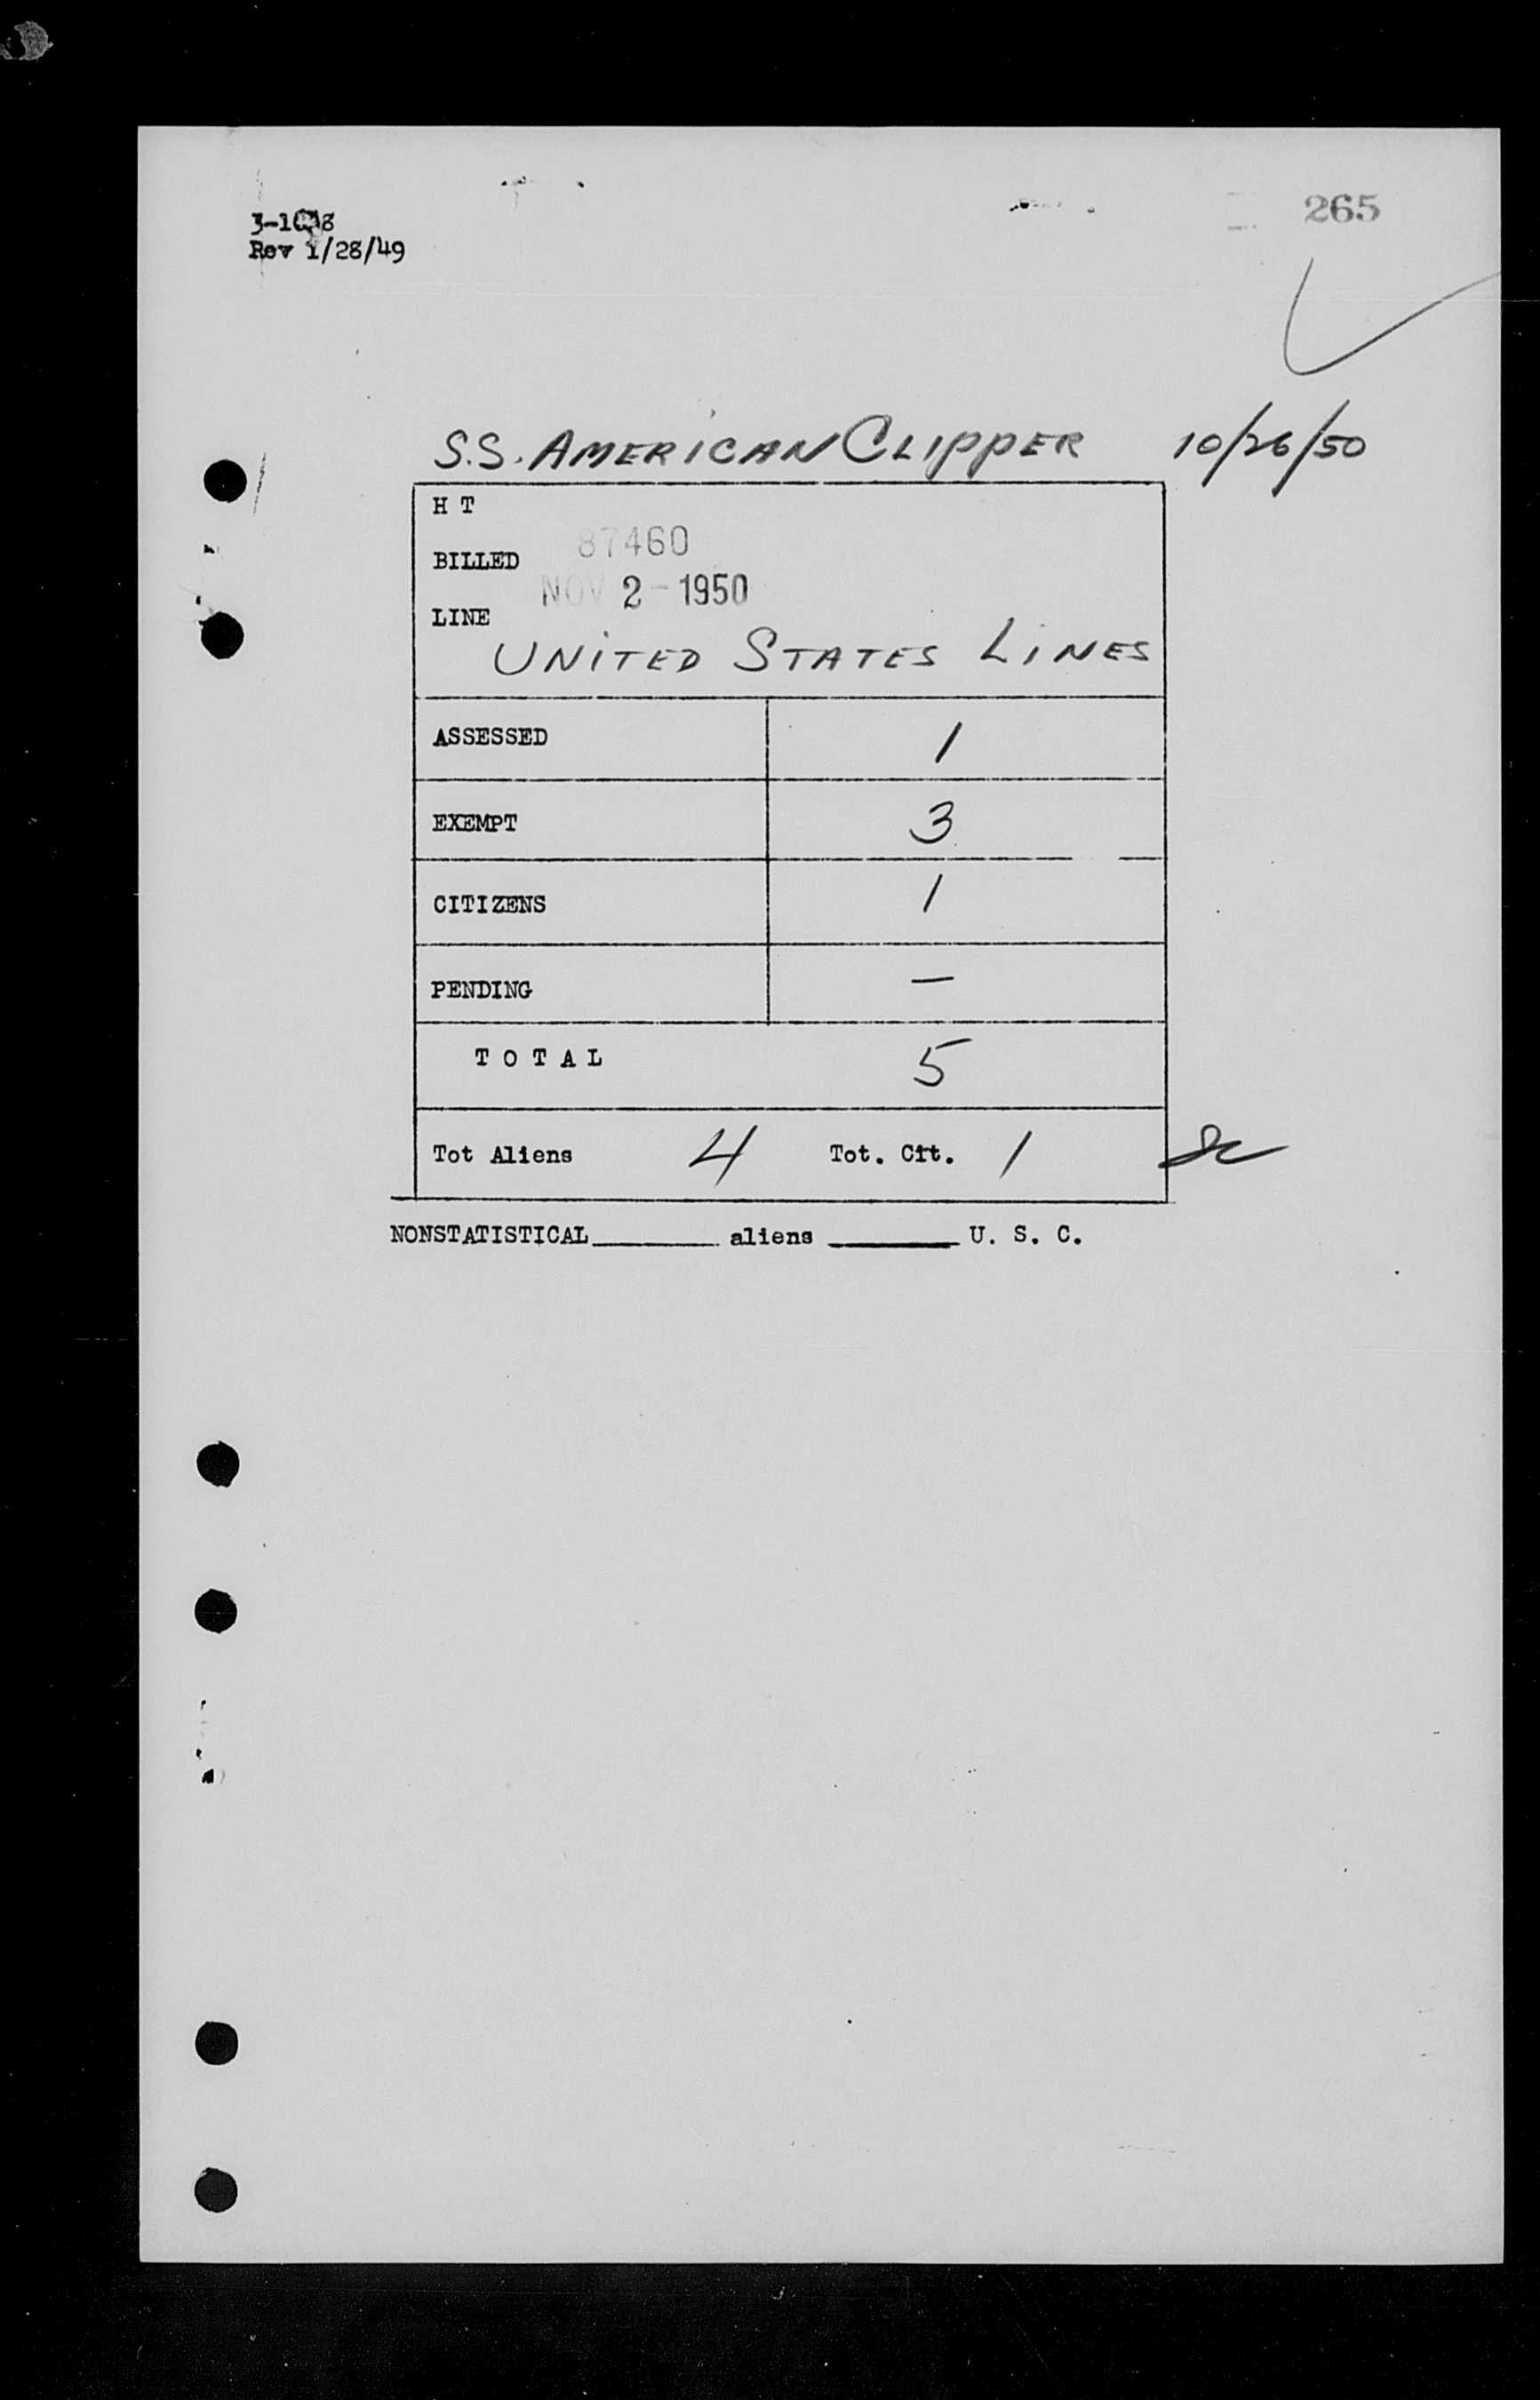 265
Rev 1/28/49
S.S. AMERICAN CLIPPER 10/26/50
H T
87460
BILLED
NOV 2 - 1950
LINE
UNITED STATES LINES
ASSESSED 1
EXEMPT 3
CITIZENS 1
PENDING —
TOTAL 5
Tot Aliens 4 Tot. Cit. 1
NONSTATISTICAL________ aliens ________ U. S. C.